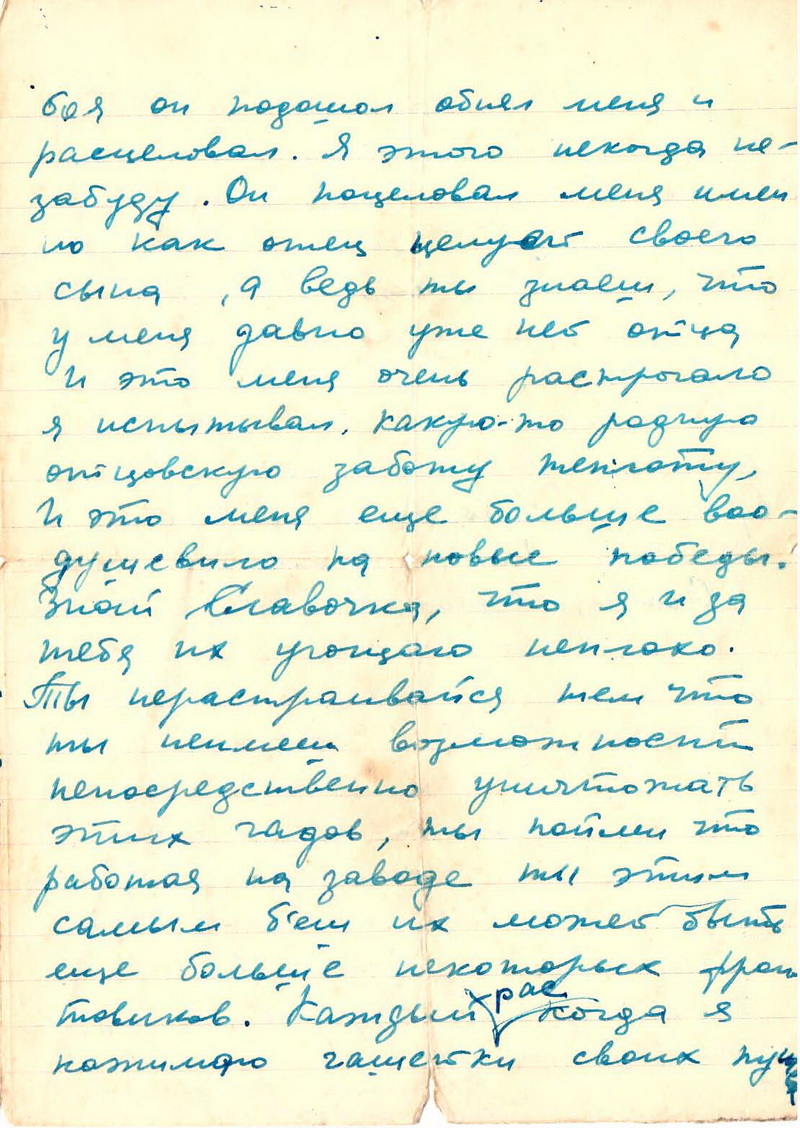 боя он подошол обнял меня и
расцеловал. Я этого некогда не-
забуду. Он поцеловал меня имен
но как отец целует своего
сына, а ведь ты знаеш, что
у меня давно уже нет отца
И это меня очень растрогало
я испытывал какую-то родную
отцовскую заботу теплоту,
И это меня еще больше воо-
душевило на новые победы.
Знай Славочка, что я и за
тебя их угощаю неплохо.
Ты нерастраивайся тем что
ты неимееш возможности
непосредственно уничтожать
этих гадов, ты пойми что
работая на заводе ты этим
самым бъеш их может быть
еще больше некоторых фрон
товиков. Каждый рас когда я
нажимаю гашетки своих пуш